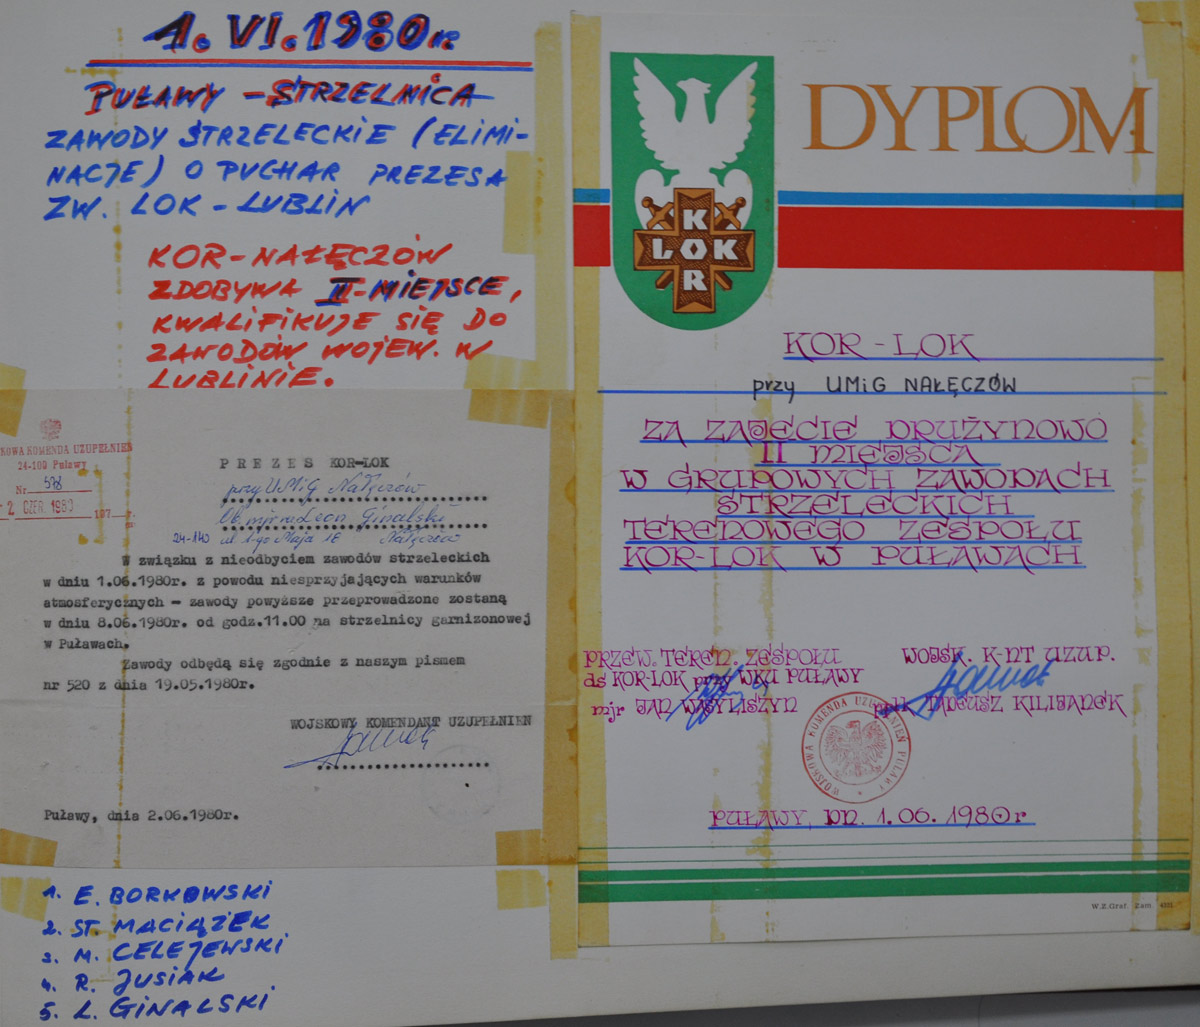 1. VI. 1980r.
PUŁAWY – STRZELNICA
ZAWODY STRZELECKIE (ELIMI-
NACJE) O PUCHAR PREZESA
ZW. LOK – LUBLIN
KOR–NAŁĘCZÓW
ZDOBYWA II–MIEJSCE,
KWALIFIKUJE SIĘ DO
ZAWODÓW WOJEW. W
LUBLINIE.
SKOWA KOMENDA UZUPEŁNIEŃ
24-100 Puławy
Nr. 578
2 CZER. 1980 197 r.
PREZES KOR-LOK
przy UMiG Nałęczów
Ob. mjr rez Leon Ginalski
24-140 ul 1-go Maja 16 Nałęczów
W związku z nieodbyciem zawodów strzeleckich
w dniu 1.06.1980r. z powodu niesprzyjających warunków
atmosferycznych – zawody powyższe przeprowadzone zostaną
w dniu 8.06.1980r. od godz.11.00 na strzelnicy garnizonowej
w Puławach.
Zawody odbędą się zgodnie z naszym pismem
nr 520 z dnia 19.05.1980r.
WOJSKOWY KOMENDANT UZUPEŁNIEŃ
Puławy, dnia 2.06.1980r.
1. E. BORKOWSKI
2. ST. MACIĄŻEK
3. M. CELEJEWSKI
4. R. JUSIAK
5. L. GINALSKI
DYPLOM
K
LOK
R
KOR – LOK
przy UMiG NAŁĘCZÓW
ZA ZAJĘCIE DRUŻYNOWO
II MIEJSCA
W GRUPOWYCH ZAWODACH
STRZELECKICH
TERENOWEGO ZESPOŁU
KOR-LOK W PUŁAWACH
PRZEW. TEREN. ZESPOŁU
ds KOR-LOK przy WKU PUŁAWY
mjr JAN WASYLISZYN
WOJSK. K-NT UZUP.
ppłk TADEUSZ KILIJANEK
WOJSKOWA KOMENDA UZUPEŁNIEŃ PUŁAWY
PUŁAWY, DN. 1.06. 1980r
W.Z.Graf. Zam.